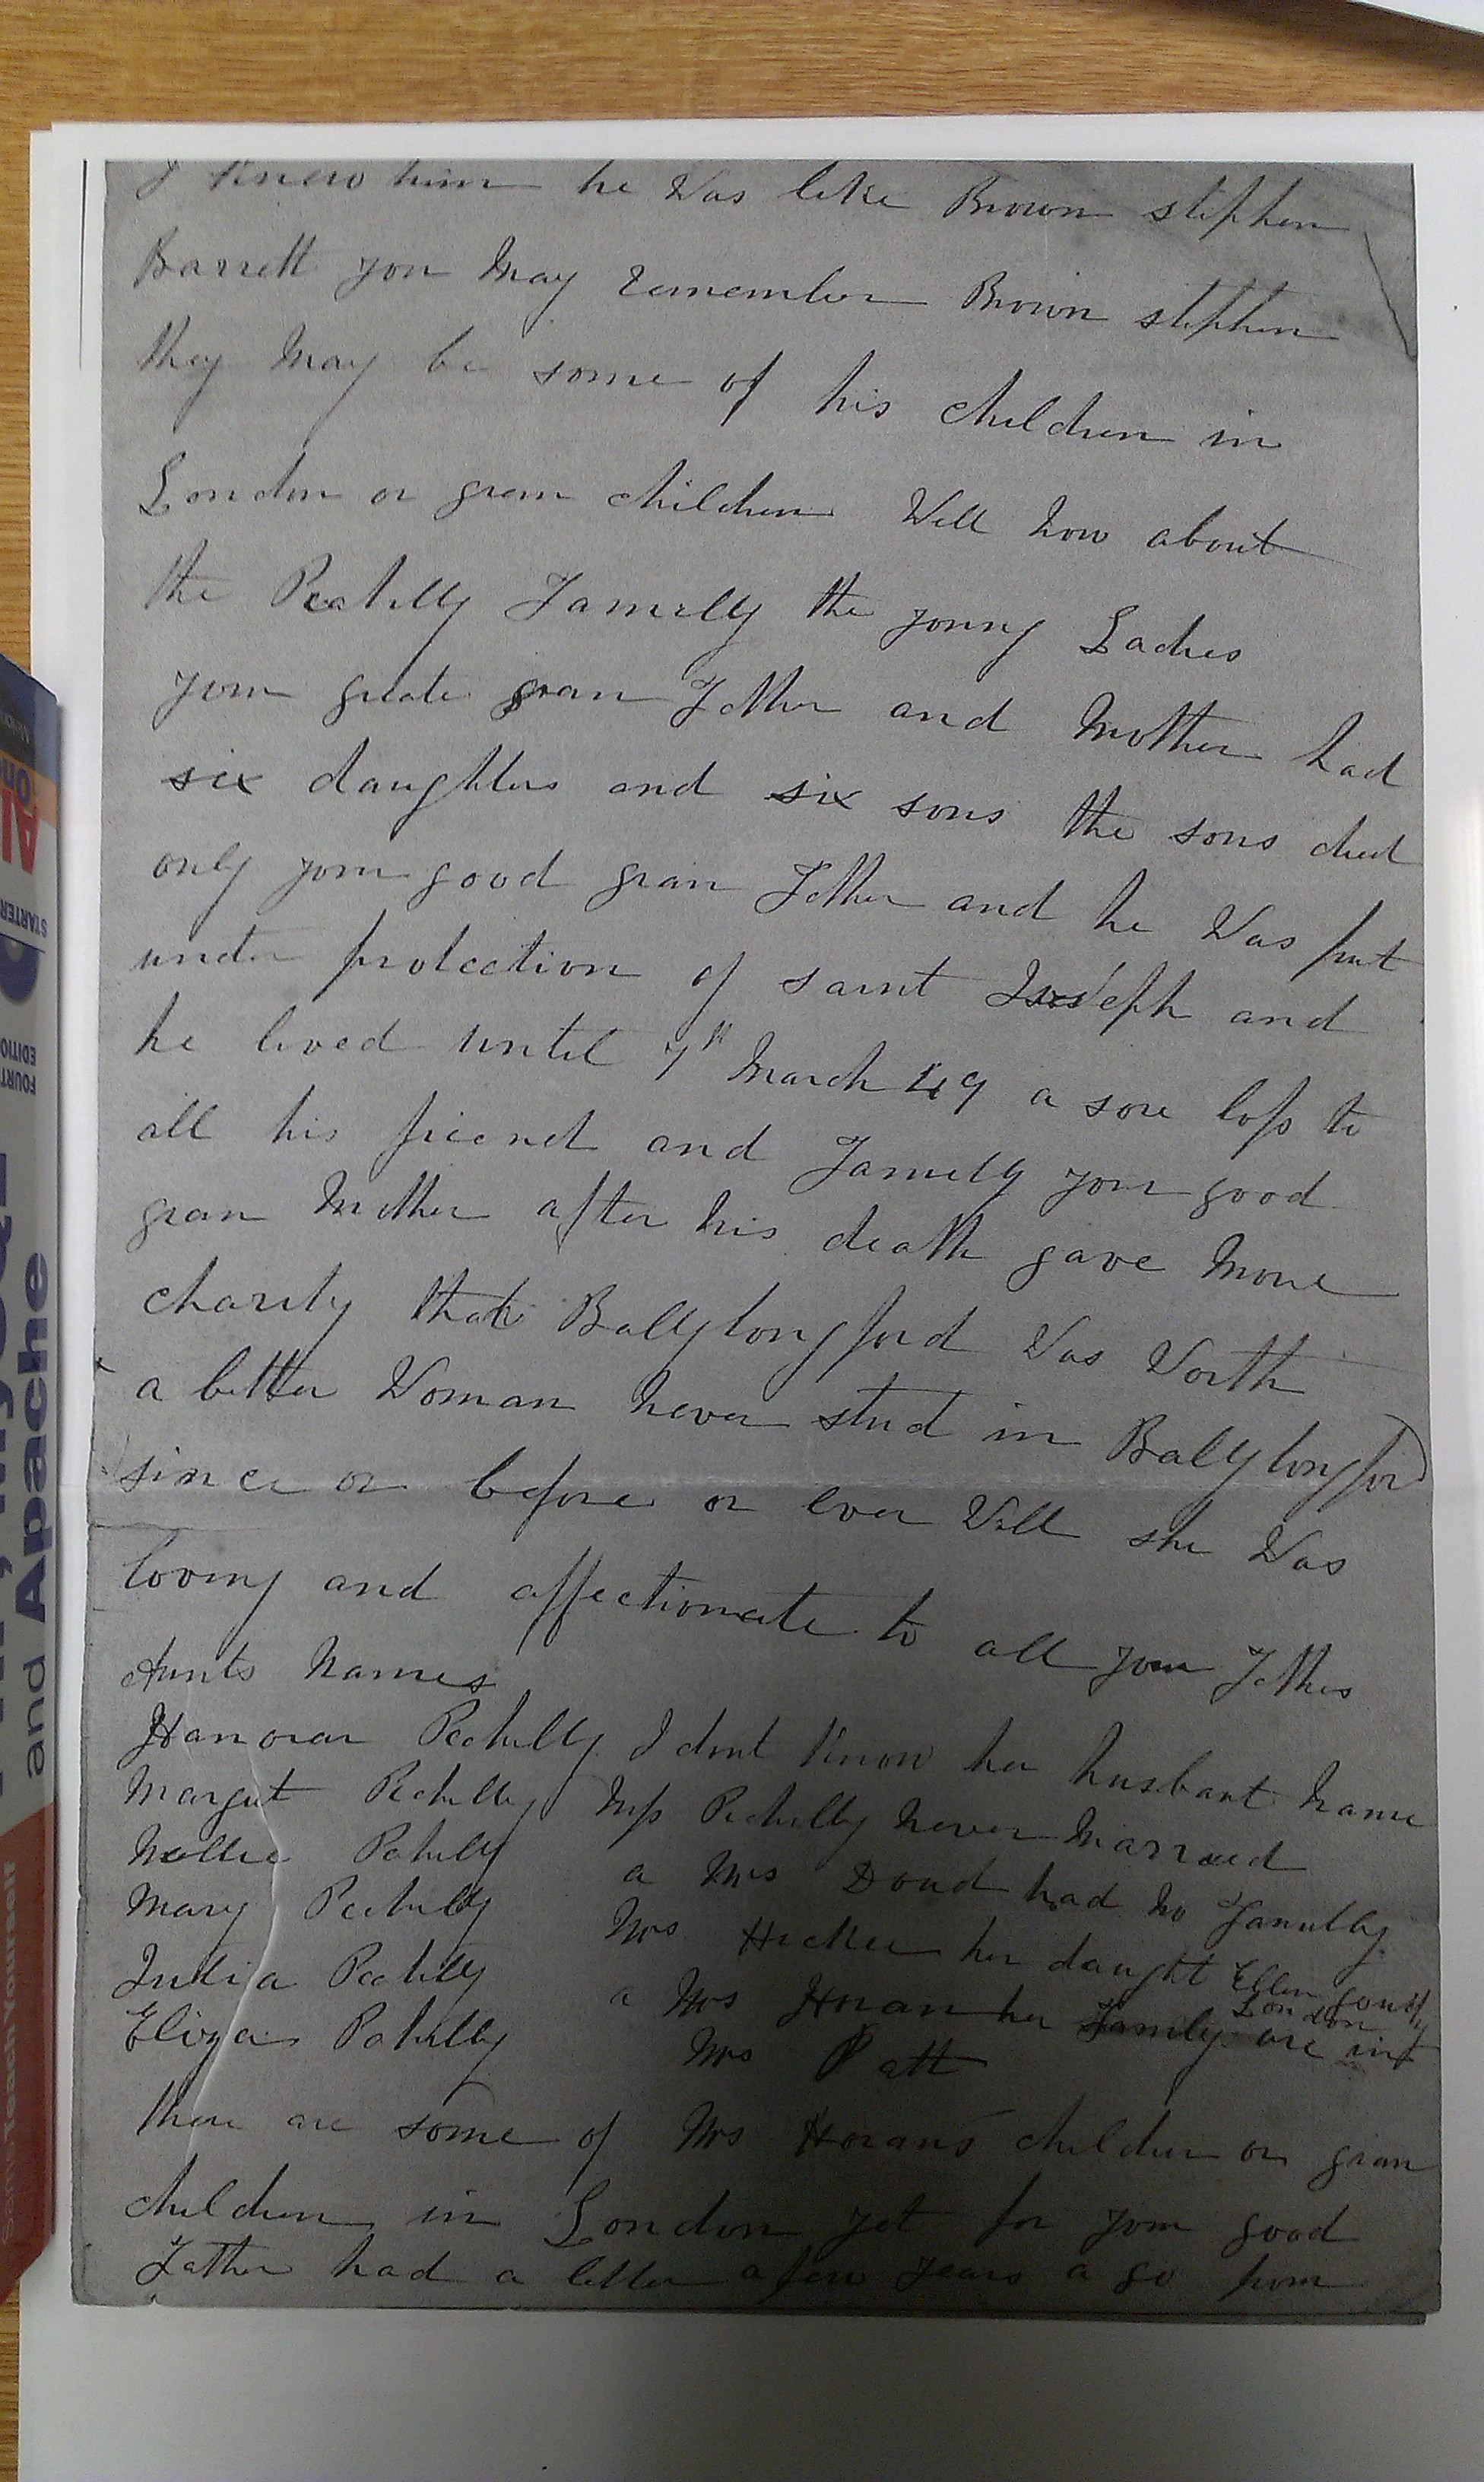 I knew him he Was like Brown stephen
Barrett you May remember Brown stephen
they May be some of his children in
London or gran children Well how about
the Peahilly Familly the young Ladies
your greate gran Father and Mother had
six daughters and six sons the sons died
only your good gran Father and he Was put
under protection of saint Joseph and
he lived until 7th March 49 a sore loss to
all his friend and Familly your good
gran Mother after his death gave More
charity that Ballylongford Was Worth
a better Woman Never stud in Ballylongford
since or before or ever Will she Was
loving and affectionate to all your Fathers
Aunts Names
Hanorar Peahilly I dont Know her husbant Name
Margret Peahilly Miss Peahilly Never Married
Nellie Pahilly a Mrs Doud had No Familly
Mary Peahilly Mrs Hickee her daught Ellen
Julia Peahilly a Mrs Horan her Family are in London
Eliza Pahilly Mrs Patt
there are some of Mrs Horans children or gran
children in London yet for your good
Father had a letter a few years a go from
Some Teach Yourself
and Apache
STARTER
FOURTH
EDITION